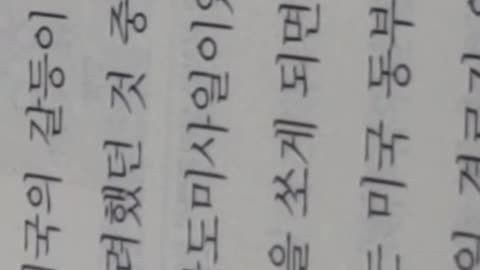 국의 갈등이
려했던 것 중
도미사일이
을 쏘게 되면
는 미국 동부